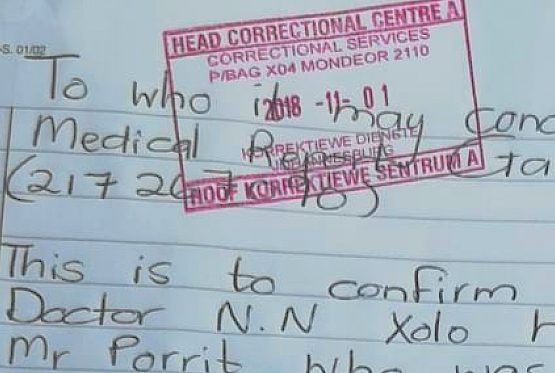 S. 01/02
HEAD CORRECTIONAL CENTRE A
CORRECTIONAL SERVICES
P/BAG X04 MONDEOR 2110
2018 -11- 01
KORREKTIEWE DIENSTE
HOOF KORREKTIEWE SENTRUM A
To who it may conc
Medical Report
(217 267
This is to confirm
Doctor N.N Xolo h
Mr Porrit who was